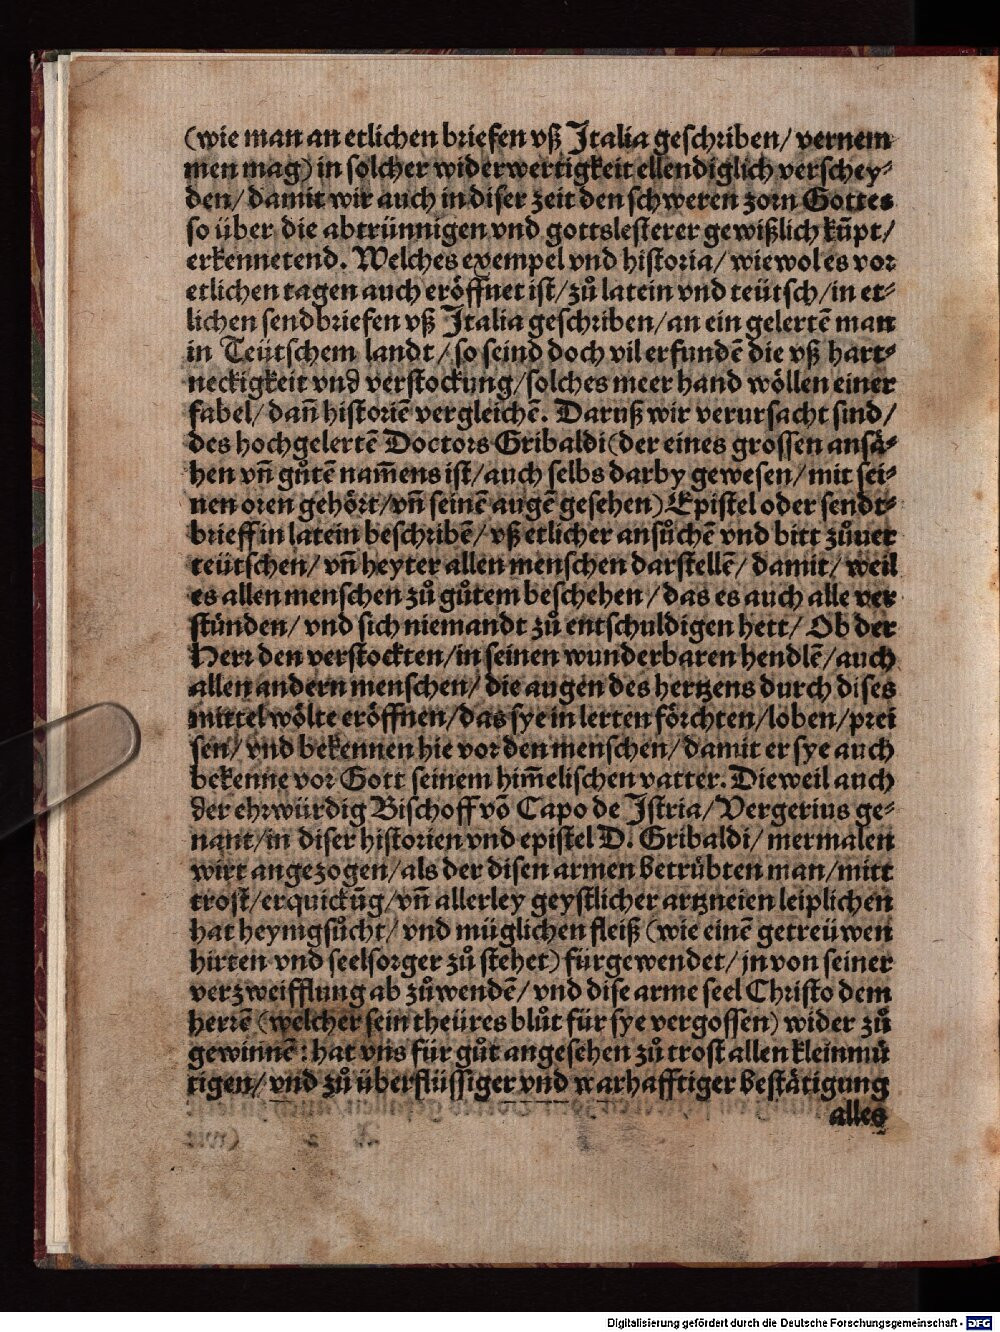 (wie man an etlichen briefen vß Italia geschriben/ vernem
men mag) in solcher widerwertigkeit ellendiglich verschey⸗
den/ damit wir auch in diser zeit den schweren zorn Gottes
so über die abtrünnigen vnd gottslesterer gewißlich kūpt/
erkennetend. Welches exempel vnd historia/ wiewol es vor
etlichen tagen auch eröffnet ist/ zů latein vnd teütsch/ in et⸗
lichen sendbriefen vß Italia geschriben/ an ein gelertē man
in Teütschem landt/ so seind doch vil erfundē die vß hart⸗
neckigkeit vnd verstockung/ solches meer hand wöllen einer
fabel/ dañ historiē vergleichē. Daruß wir verursacht sind/
des hochgelertē Doctors Gribaldi (der eines grossen ansä⸗
hen vñ gůtē nam̄ens ist/ auch selbs darby gewesen/ mit sei⸗
nen oren gehört/ vñ seinē augē gesehen) Epistel oder sendt⸗
brieff in latein beschribē/ vß etlicher ansůchē vnd bitt zůuer
teütschen/ vñ heyter allen menschen darstellē/ damit/ weil
es allen menschen zů gůtem beschehen/ das es auch alle ver
stünden/ vnd sich niemandt zů entschuldigen hett/ Ob der
Herr den verstockten/ in seinen wunderbaren hendlē/ auch
allen andern menschen/ die augen des hertzens durch dises
mittel wölte eröffnen/ das sye in lerten förchten/ loben/ prei
sen/ vnd bekennen hie vor den menschen/ damit er sye auch
bekenne vor Gott seinem him̄elischen vatter. Dieweil auch
der ehrwürdig Bischoff vō Capo de Istria/ Vergerius ge⸗
nant/ in diser historien vnd epistel D. Gribaldi/ mermalen
wirt angezogen/ als der disen armen betrübten man/ mitt
trost/ erquickūg/ vñ allerley geystlicher artzneien leiplichen
hat heymgsůcht/ vnd müglichen fleiß (wie einē getreüwen
hirten vnd seelsorger zů stehet) fürgewendet/ jn von seiner
verzweifflung ab zůwendē/ vnd dise arme seel Christo dem
herrē (welcher sein theüres blůt für sye vergossen) wider zů
gewinnē: hat vns für gůt angesehen zů trost allen kleinmü
tigen/ vnd zů überflüssiger vnd warhafftiger bestätigung
alles
Digitalisierung gefördert durch die Deutsche Forschungsgemeinschaft - DFG